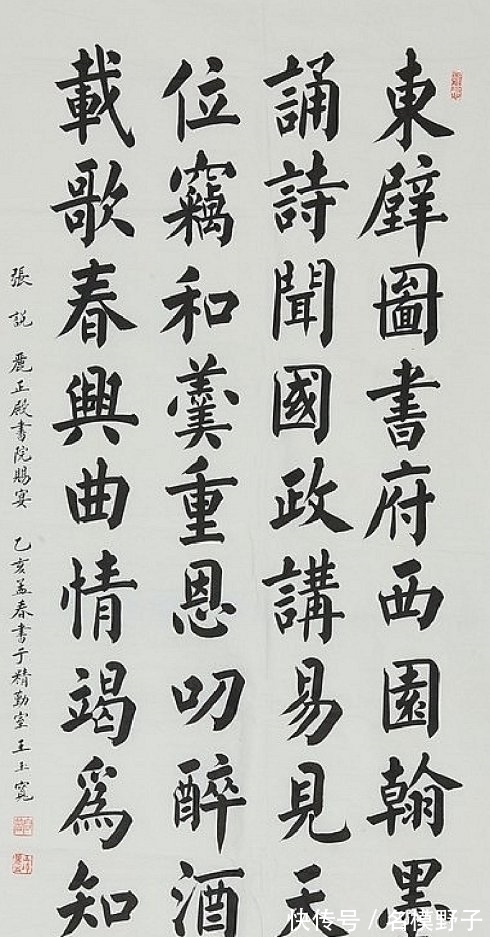 東壁圖書府西園翰墨
誦詩聞國政講易見天
位竊和羹重恩叨醉酒
載歌春興曲情竭爲知
張說 麗正殿書院賜宴 乙亥孟春書于精勤室 王
快传号 / 名模野子